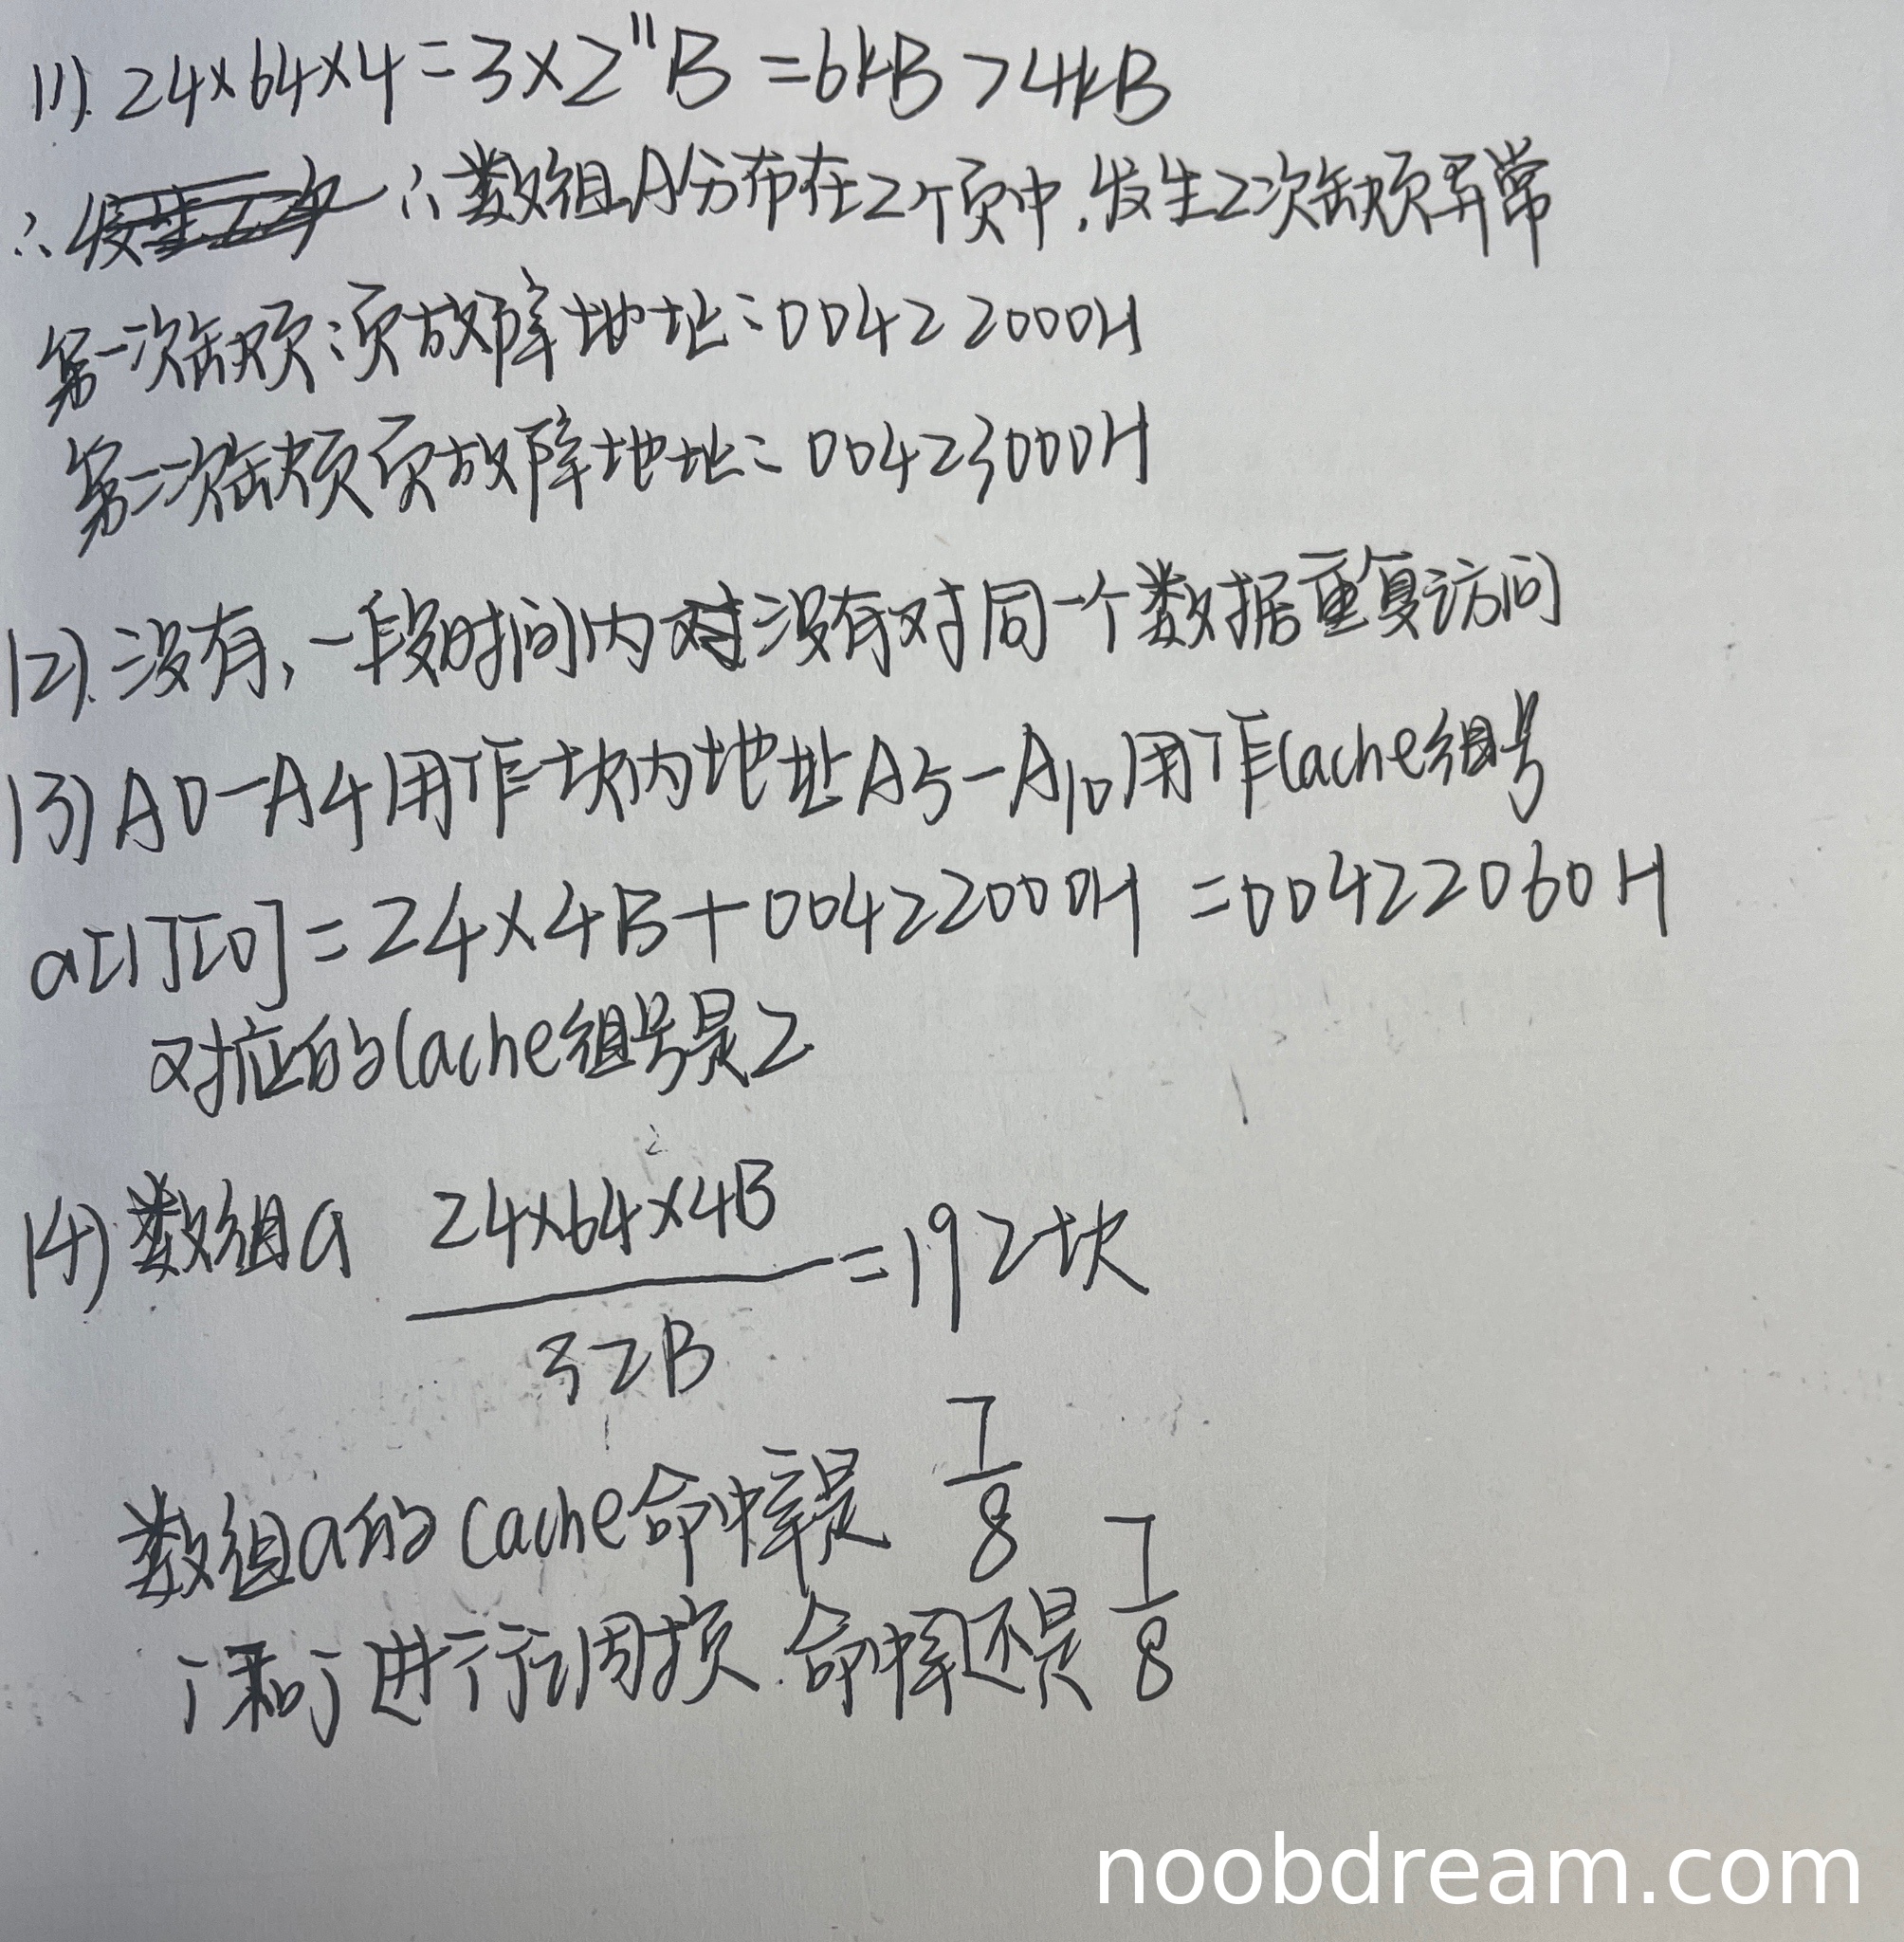 (1). 24×64×4=3×2¹¹B=6kB>4kB
∴ ∴数组A分布在2个页中,发生2次缺页异常
第一次缺页:页故障地址:00422000H
第二次缺页页故障地址:00423000H
(2).没有,一段时间内没有对同一个数据重复访问
(3)A0-A4用作块内地址A5-A10用作Cache组号
a[1][0]=24×4B+00422000H=00422060H
对应的Cache组号是2
(4)数组a 24×64×4B/32B=192块
数组a的Cache命中率是 7/8
i和j进行调换.命中率还是 7/8
noobdream.com